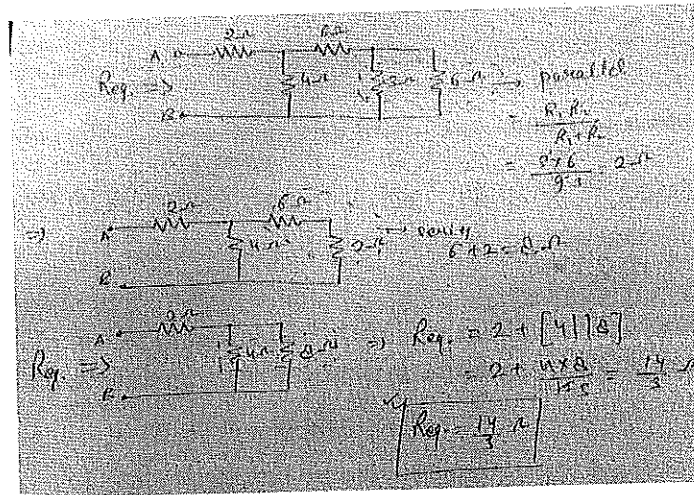 2Ω 6Ω
A
Req. => 4Ω 3Ω 6Ω → parallel
B
= R₁ R₂ / R₁+R₂
= 3×6 / 9 = 2Ω
=> A 2Ω 6Ω
4Ω 2Ω → series
6+2 = 8Ω
B
A 2Ω
Req. => 4Ω 8Ω => Req. = 2 + [4||8]
B
= 2 + 4×8 / 12 = 14/3 Ω
Req. = 14/3 Ω